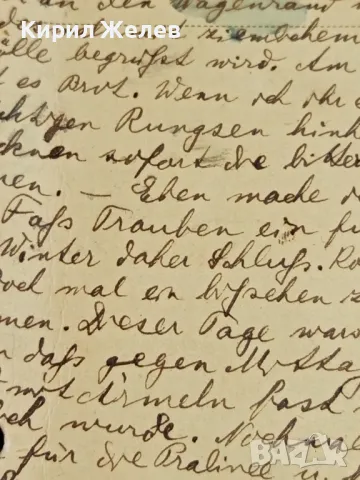 an den Wagenrand
Кирил Желев
ziembehem
älle begrüßt wird. Am
t es Brot. Wenn ich ihr
chtigen Rungsen hink
cknen sofort die bitter
nen. — Eben mache
Fass Trauben ein für
Winter daher Schluss. Ro
doch mal ein bisschen z
men. Dieser Tage ward
n dass gegen Mitta
mit Ärmeln fast
och wurde. Noch
für die Pralinee u.
bazar